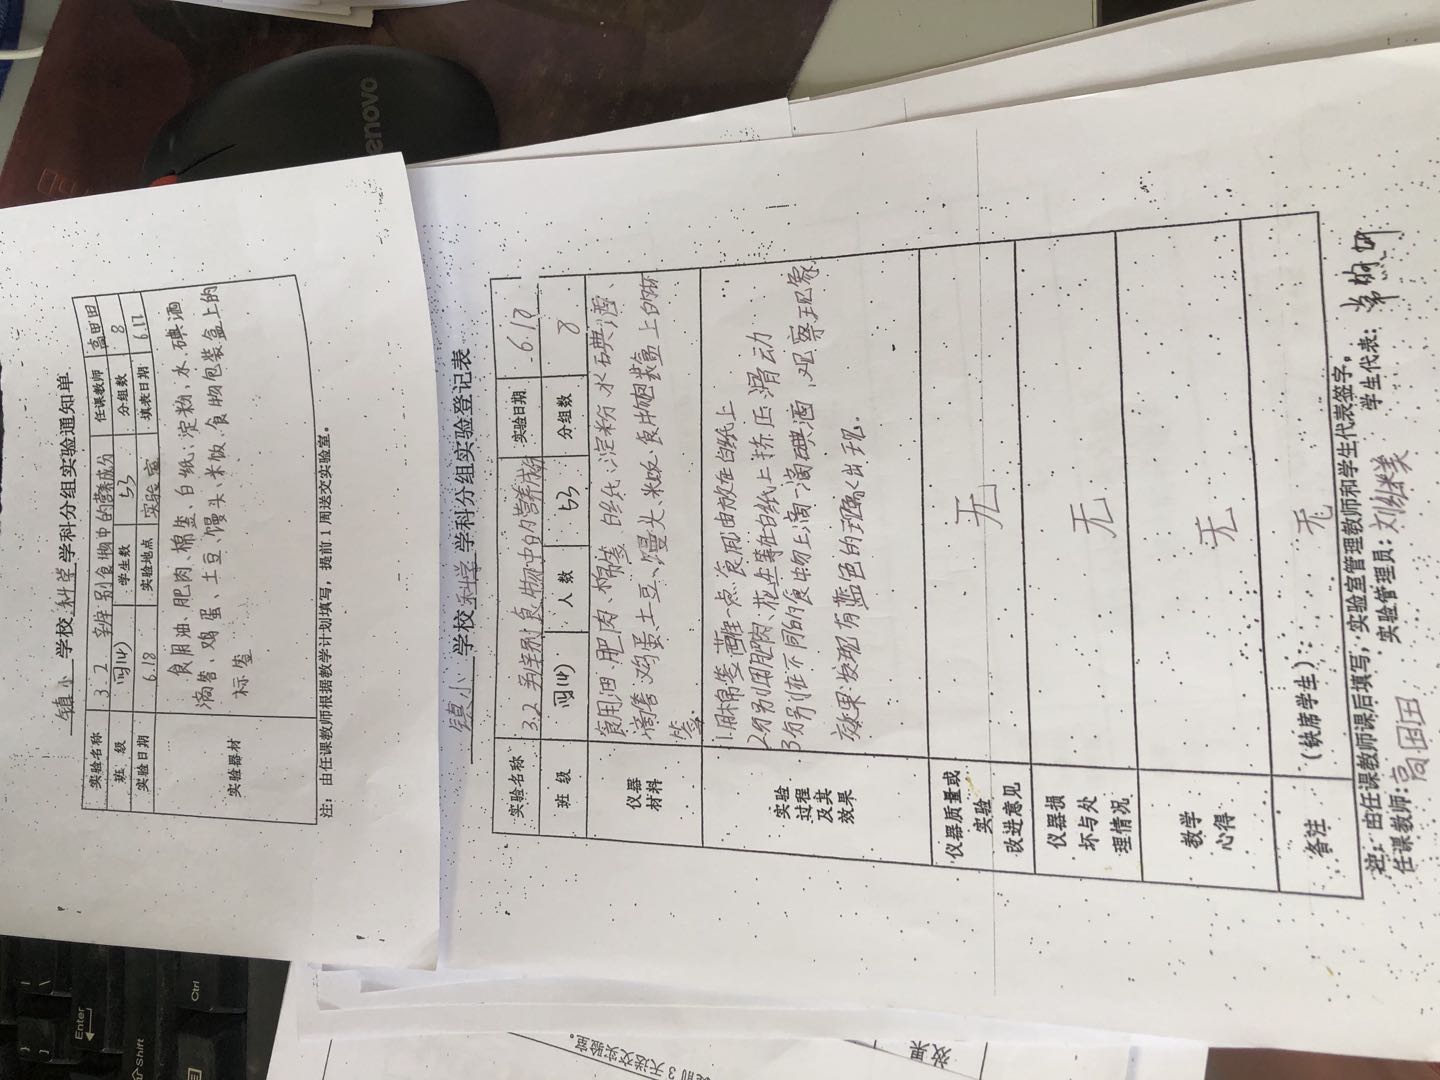 镇小 学校 科学 学科分组实验通知单
实验名称 3.2 辨别食物中的营养成分 任课教师 高田田
班 级 四(4) 学生数 53 分组数 8
实验日期 6.18 实验地点 实验室 填表日期 6.17
实验器材
食用油、肥肉 棉签、白纸、淀粉、水、碘酒
滴管、鸡蛋、土豆、馒头、米饭、食物包装盒上的
标签
注：由任课教师根据教学计划填写，提前1周送交实验室。
镇小 学校 科学 学科分组实验登记表
实验名称 3.2 辨别食物中的营养成份 实验日期 6.18
班 级 四(4) 人 数 53 分组数 8
仪器
材料
食用油 肥肉 棉签 白纸 淀粉 水 碘酒、
滴管 鸡蛋 土豆、馒头 米饭 食物包装盒上的标
签
实验
过程
及其
效果
1.用棉签蘸一点食用油放在白纸上
2分别用肥肉、花生等在白纸上挤压滑动
3分别在不同的食物上滴一滴碘酒,观察现象
效果:发现有蓝色的现象出现.
仪器质量或
实验
改进意见
无
仪器损
坏与处
理情况
无
教学
心得
无
备注
(缺席学生)： 无
注：由任课教师课后填写，实验室管理教师和学生代表签字。
任课教师：高田田 实验管理员： 学生代表：
Enter
Shift
Ctrl
enovo